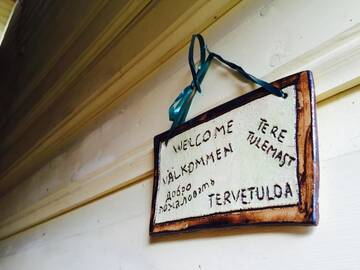 WELCOME
TERE
TULEMAST
VÄLKOMMEN
добро
пожаловатъ
TERVETULDA